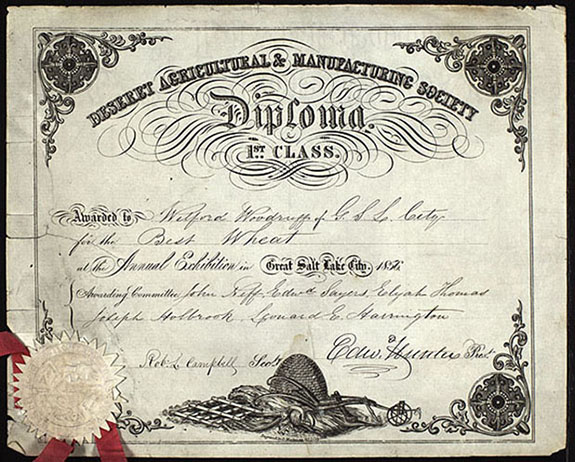 DESERET AGRICULTURAL & MANUFACTURING SOCIETY
Diploma.
1ST. CLASS.
Awarded to Wilford Woodruff of G. S. L. City
for the Best Wheat
at the Annual Exhibition in Great Salt Lake City, 185
Awarding Committee, John Neff Edwd Sayers Elijah Thomas
Joseph Holbrook, Leonard E. Harrington
Robt. L. Campbell Secty Edw. Hunter Prest